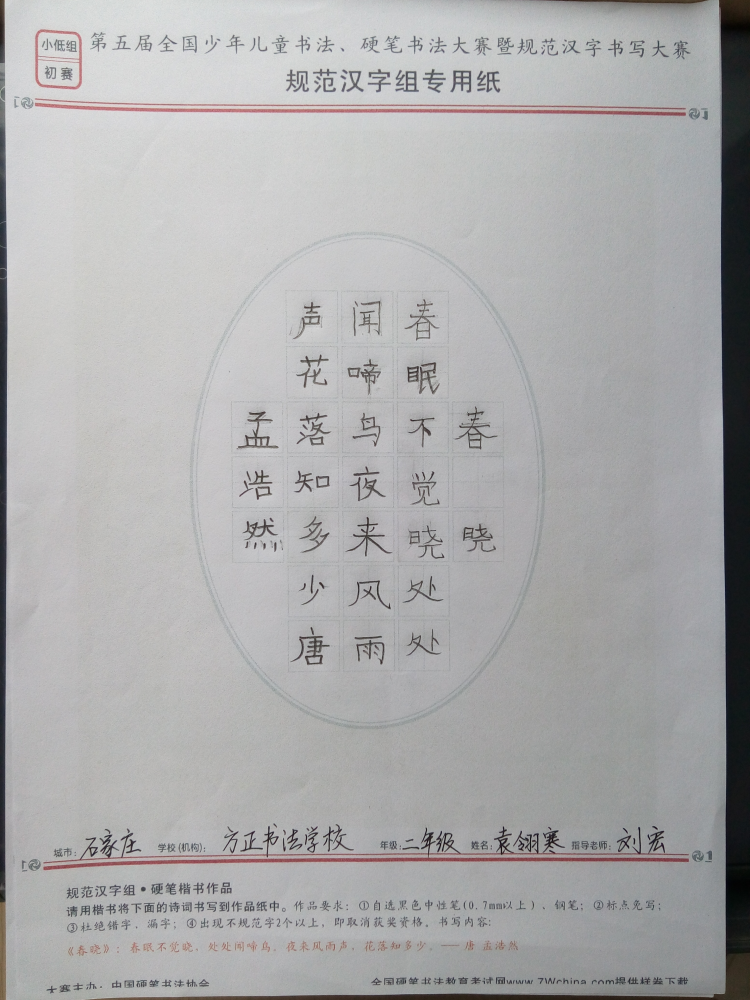 小低组
初赛
第五届全国少年儿童书法、硬笔书法大赛暨规范汉字书写大赛
规范汉字组专用纸
春晓
春眠不觉晓处处
闻啼鸟夜来风雨
声花落知多少唐
孟浩然
城市：石家庄 学校(机构)：方正书法学校 年级：二年级 姓名：袁翎寒 指导老师：刘宏
规范汉字组·硬笔楷书作品
请用楷书将下面的诗词书写到作品纸中。作品要求：①自选黑色中性笔(0.7mm以上)、钢笔；②标点免写；
③杜绝错字、漏字；④出现不规范字2个以上，即取消获奖资格。书写内容：
《春晓》：春眠不觉晓，处处闻啼鸟。夜来风雨声，花落知多少。——唐 孟浩然
大赛主办：中国硬笔书法协会 全国硬笔书法教育考试网www.7Wchina.com提供样卷下载